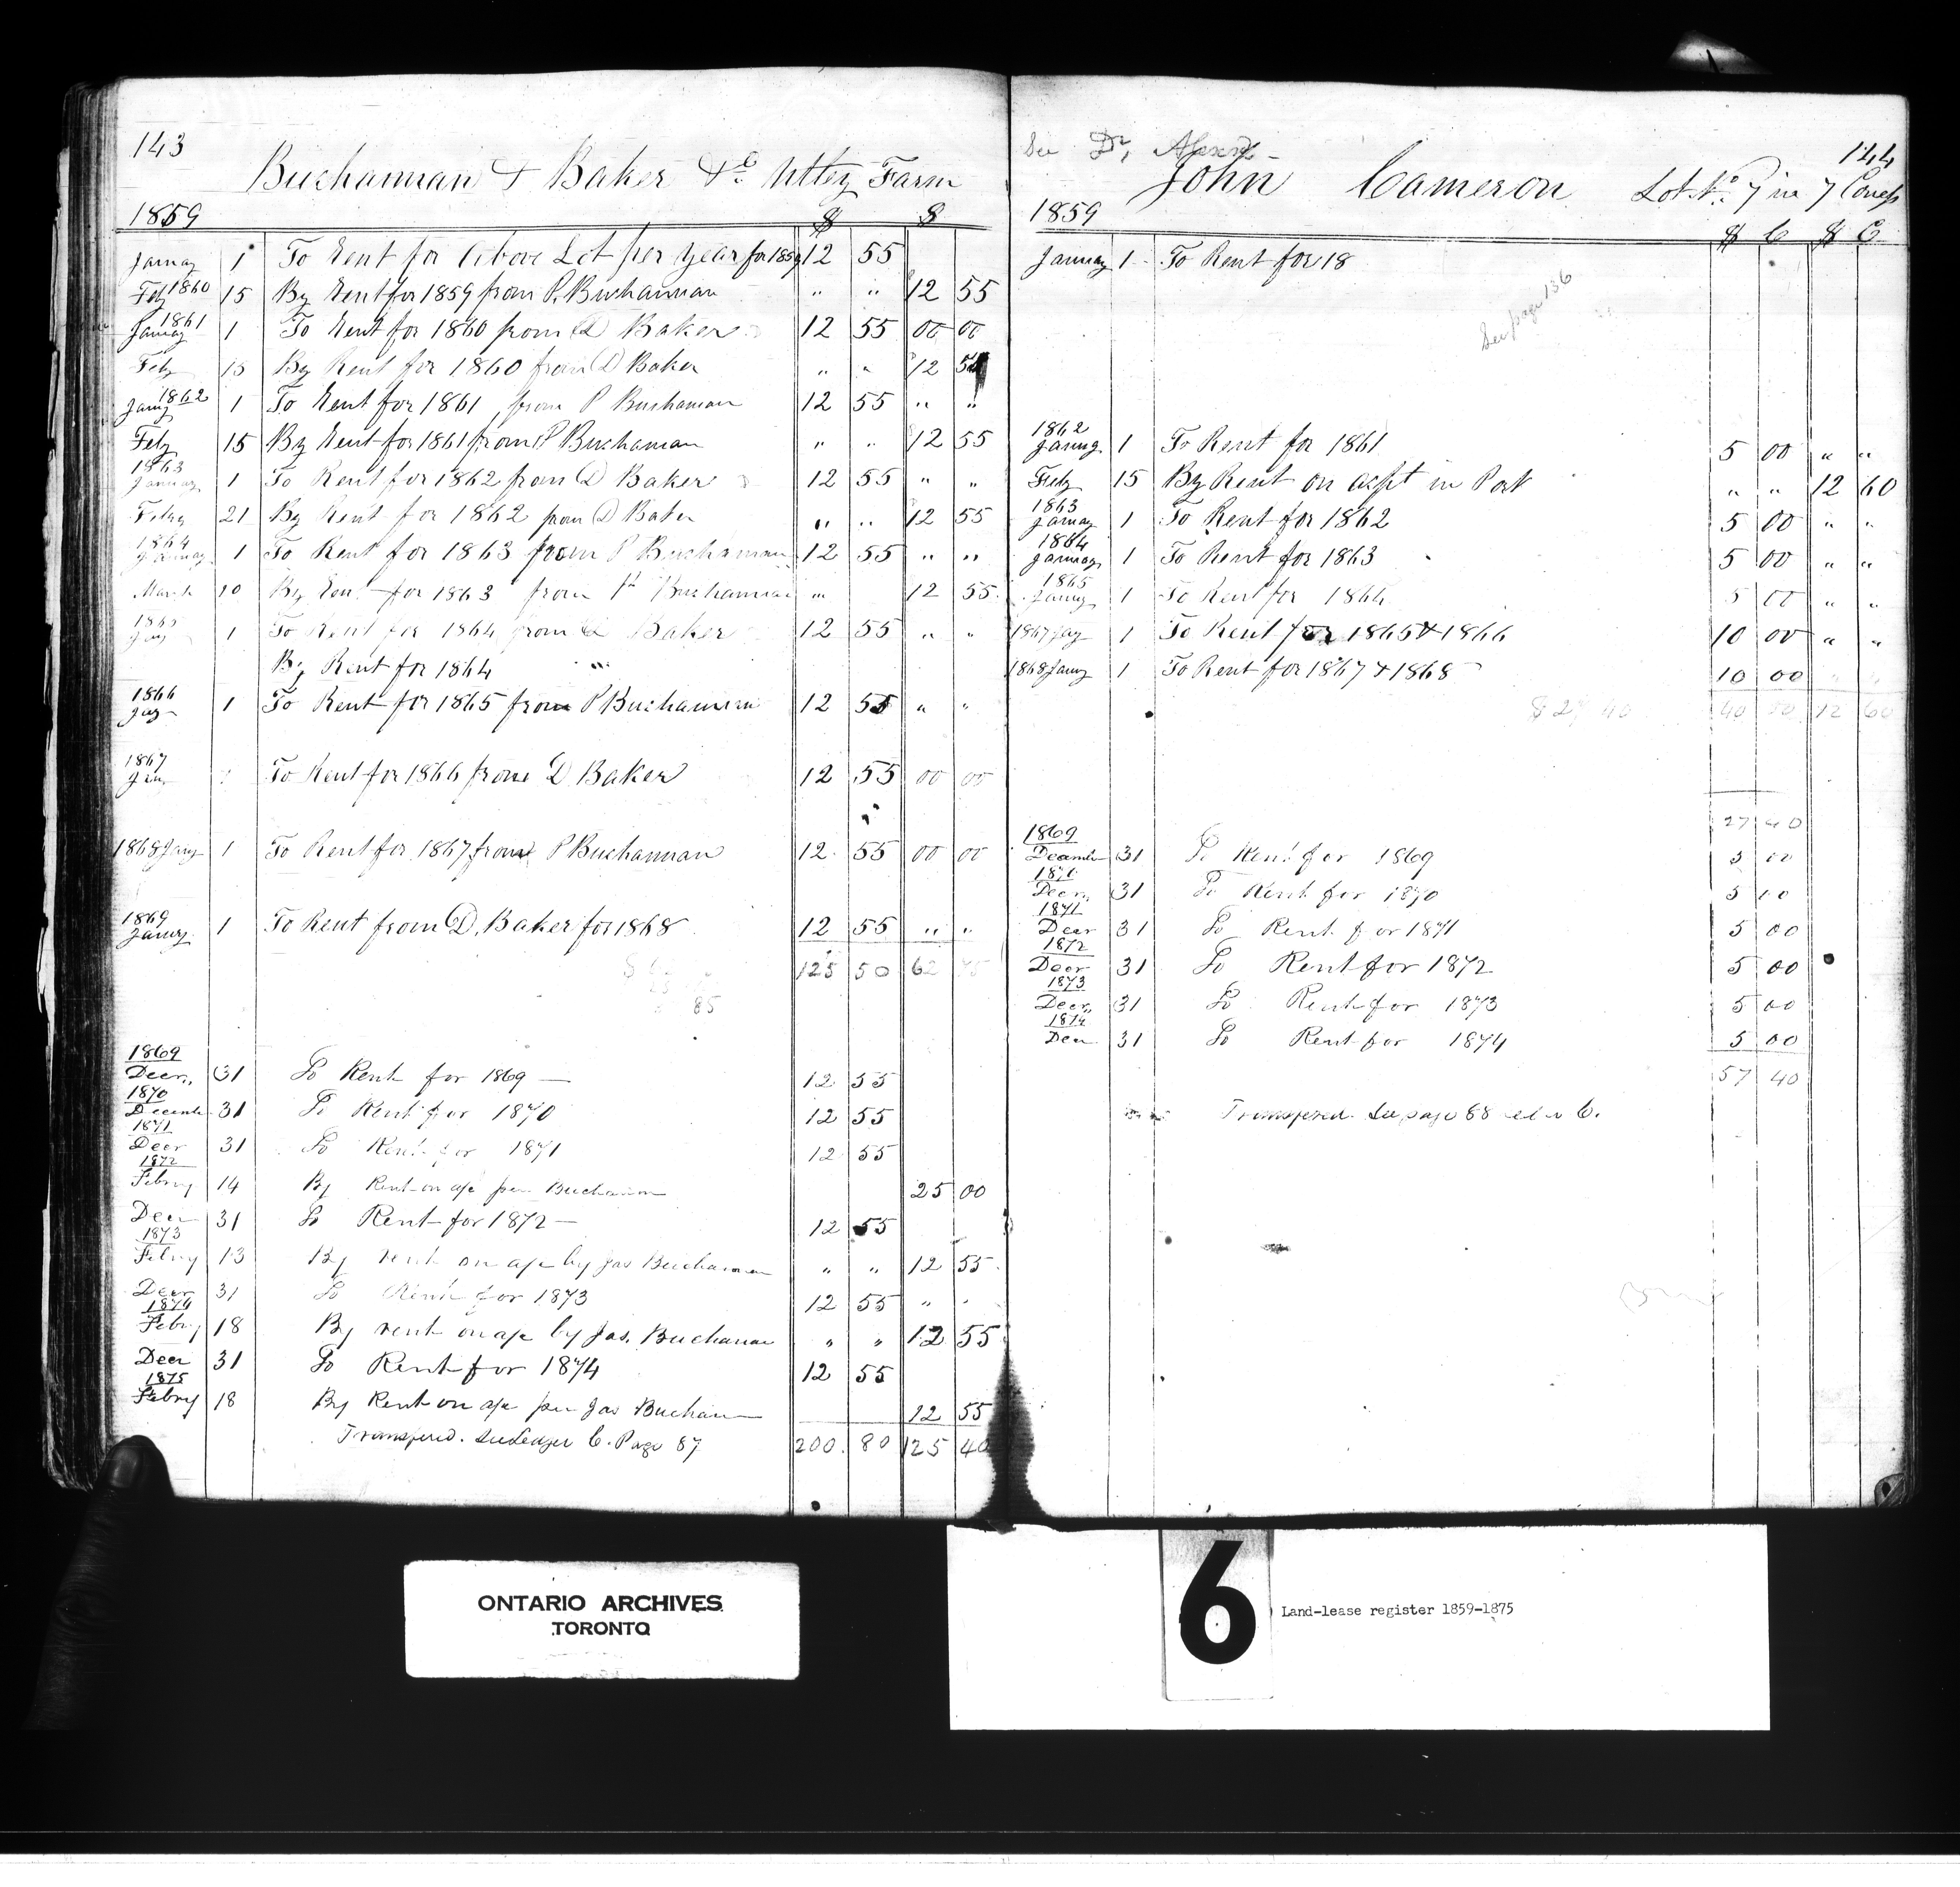 143
Buchannan & Baker &c Utley Farm
1859 $ $
January 1 To Rent for Above Lot per Year for 1859 12 55
1860
Feby 15 By Rent for 1859 from P. Buchannan " " 12 55
1861
January 1 To Rent for 1860 from D Baker 12 55 00 00
Feby 15 By Rent for 1860 from D Baker " " 12 55
1862
Jany 1 To Rent for 1861 from P Buchanan 12 55 " "
Feby 15 By Rent for 1861 from P Buchanan " " 12 55
1863
January 1 To Rent for 1862 from D Baker 12 55 " "
Febry 21 By Rent for 1862 from D Baker " " 12 55
1864
January 1 To Rent for 1863 from P Buchannan 12 55 " "
March 10 By Rent for 1863 from P Buchannan " 12 55
1865
Jany 1 To Rent for 1864 from D Baker 12 55 " "
By Rent for 1864 "
1866
Jay 1 To Rent for 1865 from P Buchannan 12 55 " "
1867
Jany To Rent for 1866 from D Baker 12 55 00 00
1868 Jany 1 To Rent for 1867 from P Buchannan 12 55 00 00
1869
Janury 1 To Rent from D. Baker for 1868 12 55 " "
125 50 62 75
85
1869
Decr. 31 To Rent for 1869 — 12 55
1870
Decembr 31 To Rent for 1870 12 55
1871
Decr 31 To Rent for 1871 12 55
1872
Febry 14 By Rent on a/c per Buchanan 25 00
Decr 31 To Rent for 1872 — 12 55
1873
Febry 13 By rent on a/c by Jas Buchanan " " 12 55
Decr 31 To Rent for 1873 12 55 " "
1874
Febry 18 By rent on a/c by Jas. Buchanan " " 12 55
Decr 31 To Rent for 1874 12 55
1875
Febry 18 By Rent on a/c per Jas Buchan 12 55
Transfered. See Ledger C. Page 87 200 80 125 40
See Dr, Alexr
144
John Cameron Lot No. 7 in 7 Concess
1859 $ C $ C
January 1 To Rent for 18
See page 136
1862
Janury 1 To Rent for 1861 5 00 " "
Feby 15 By Rent on acpt in Part " " 12 60
1863
January 1 To Rent for 1862 5 00 " "
1864
January 1 To Rent for 1863 5 00 " "
1865
Janury 1 To Rent for 1864 5 00 " "
1867 Jay 1 To Rent for 1865 & 1866 10 00 " "
1868 Jany 1 To Rent for 1867 & 1868 10 00 " "
$ 27 40 40 00 12 60
27 40
1869
December 31 To Rent for 1869 5 00
1870
Decr. 31 To Rent for 1870 5 00
1871
Decr 31 To Rent for 1871 5 00
1872
Decr 31 To Rent for 1872 5 00
1873
Decr. 31 To Rent for 1873 5 00
1874
Decr 31 To Rent for 1874 5 00
57 40
Transfered. See page 88 C.
ONTARIO ARCHIVES
TORONTO
6
Land-lease register 1859-1875